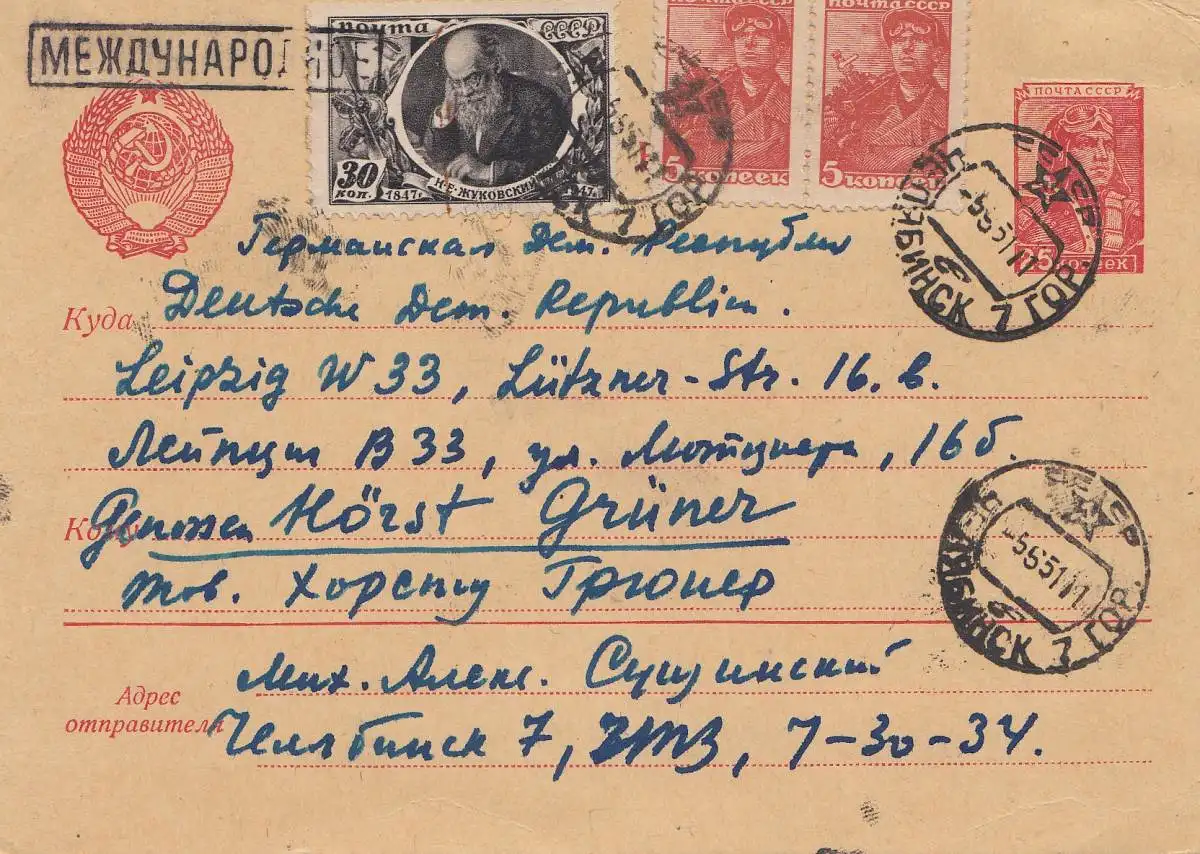 МЕЖДУНАРОДНОЕ
почта СССР
30 коп.
1847г. Н·Е·ЖУКОВСКИЙ 1947г.
ПОЧТА СССР
5 копеек
ПОЧТА СССР
5 копеек
ПОЧТА СССР
25 копеек
ЧЕЛЯБИНСК 7 ГОР.
5651
Германская Дем. Республ
Куда Deutsche Dem. Republik.
Leipzig W 33, Lützner-Str. 16. b.
Лейпциг В 33, ул. Лютцнера, 16б.
Кому Genossen Hörst Grüner
тов. Хорсту Грюнер
ЧЕЛЯБИНСК 7 ГОР.
5651
Адрес отправителя
Мих. Алекс. Сущинский
Челябинск 7, 7-30-34.